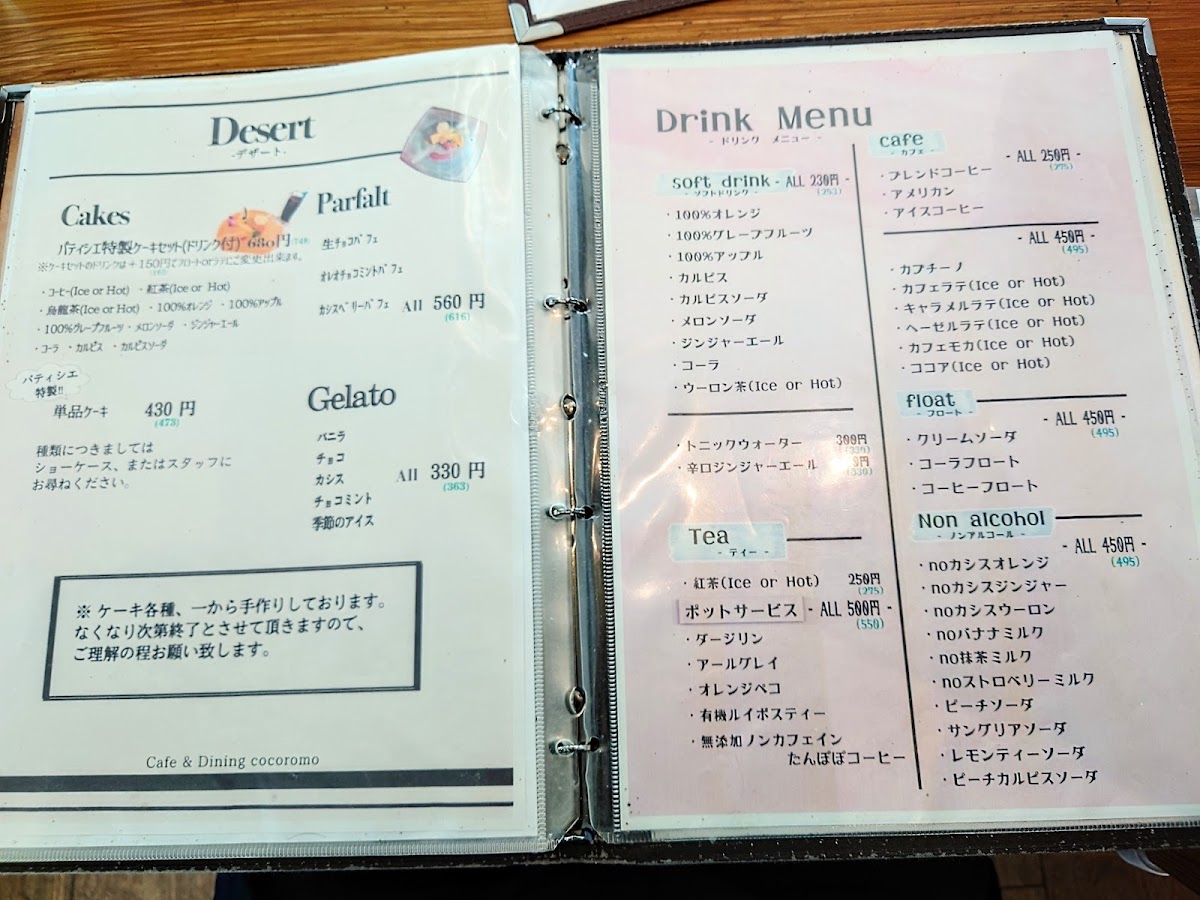 Desert
-デザート-
Cakes
パティシエ特製ケーキセット(ドリンク付) 680円(748)
※ケーキセットのドリンクは+150円でフロートorラテにご変更出来ます。
・コーヒー(Ice or Hot) ・紅茶(Ice or Hot)
・烏龍茶(Ice or Hot) ・100%オレンジ ・100%アップル
・100%グレープフルーツ ・メロンソーダ ・ジンジャーエール
・コーラ ・カルピス ・カルピスソーダ
パティシエ
特製!!
単品ケーキ 430 円
(473)
種類につきましては
ショーケース、またはスタッフに
お尋ねください。
Parfalt
生チョコパフェ
オレオチョコミントパフェ
カシスベリーパフェ All 560 円
(616)
Gelato
バニラ
チョコ
カシス All 330 円
(363)
チョコミント
季節のアイス
※ ケーキ各種、一から手作りしております。
なくなり次第終了とさせて頂きますので、
ご理解の程お願い致します。
Cafe & Dining cocoromo
Drink Menu
- ドリンク メニュー -
soft drink - ALL 230円 -
- ソフトドリンク - (253)
・100%オレンジ
・100%グレープフルーツ
・100%アップル
・カルピス
・カルピスソーダ
・メロンソーダ
・ジンジャーエール
・コーラ
・ウーロン茶(Ice or Hot)
・トニックウォーター 300円
(330)
・辛口ジンジャーエール 円
(330)
Tea
- ティー -
・紅茶(Ice or Hot) 250円
(275)
ポットサービス - ALL 500円 -
(550)
・ダージリン
・アールグレイ
・オレンジペコ
・有機ルイボスティー
・無添加ノンカフェイン
たんぽぽコーヒー
cafe
- カフェ -
- ALL 250円 -
(275)
・ブレンドコーヒー
・アメリカン
・アイスコーヒー
- ALL 450円 -
(495)
・カプチーノ
・カフェラテ(Ice or Hot)
・キャラメルラテ(Ice or Hot)
・ヘーゼルラテ(Ice or Hot)
・カフェモカ(Ice or Hot)
・ココア(Ice or Hot)
float
- フロート -
- ALL 450円 -
(495)
・クリームソーダ
・コーラフロート
・コーヒーフロート
Non alcohol
- ノンアルコール -
- ALL 450円 -
(495)
・noカシスオレンジ
・noカシスジンジャー
・noカシスウーロン
・noバナナミルク
・no抹茶ミルク
・noストロベリーミルク
・ピーチソーダ
・サングリアソーダ
・レモンティーソーダ
・ピーチカルピスソーダ